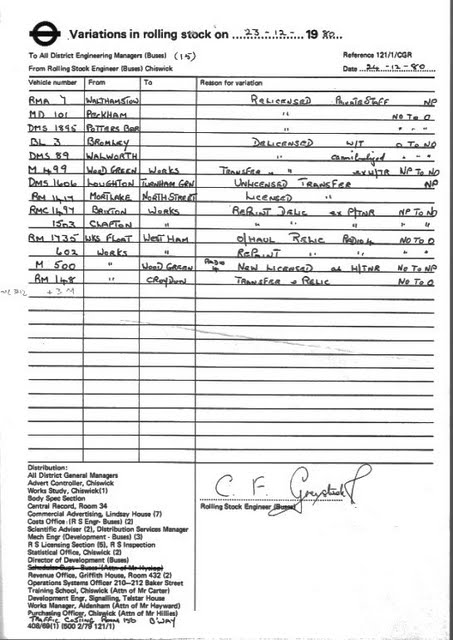 Variations in rolling stock on 23-12- 1980.
To All District Engineering Managers (Buses) (15) Reference 121/1/CGR
From Rolling Stock Engineer (Buses) Chiswick Date 24-12-80
Vehicle number From To Reason for variation
RMA 7 WALTHAMSTOW RELICENSED PRIVATE STAFF NP
MD 101 PECKHAM " NO TO O
DMS 1895 POTTERS BAR " " " "
BL 3 BROMLEY DELICENSED W/T O TO NO
DMS 89 WALWORTH " cannibalised " " "
M 499 WOOD GREEN WORKS TRANSFER " ex H/TR NP TO NO
DMS 1606 LOUGHTON TURNHAM GRN UNLICENSED TRANSFER NP
RM 1417 MORTLAKE NORTH STREET LICENSED "
RMC 1497 BRIXTON WORKS REPAINT DELIC ex P/TNR NP TO NO
1503 CLAPTON " " " " "
RM 1735 WKS FLOAT WEST HAM O/HAUL RELIC RADIO 4 NO TO O
602 WORKS " REPAINT " " "
M 500 " WOOD GREEN RADIO 4 NEW LICENSED as H/TNR NO TO NP
RM 148 " CROYDON TRANSFER & RELIC NO TO O
+ 3 M
Distribution:
All District General Managers
Advert Controller, Chiswick
Works Study, Chiswick(1)
Body Spec Section
Central Record, Room 34
Commercial Advertising, Lindsey House (7)
Costs Office: (R S Engr Buses) (2)
Scientific Adviser (2), Distribution Services Manager
Mech Engr (Development - Buses) (3)
R S Licensing Section (5), R S Inspection
Statistical Office, Chiswick (2)
Director of Development (Buses)
Schedules Gups - Buses (Attn of Mr Hyslop)
Revenue Office, Griffith House, Room 432 (2)
Operations Systems Officer 210-212 Baker Street
Training School, Chiswick (Attn of Mr Carter)
Development Engr, Signalling, Telstar House
Works Manager, Aldenham (Attn of Mr Hayward)
Purchasing Officer, Chiswick (Attn of Mr Hillies)
TRAFFIC CASTING ROOM 150 B'WAY
408/69(1) (500 2/79 121/1)
C. F.
Rolling Stock Engineer (Buses)